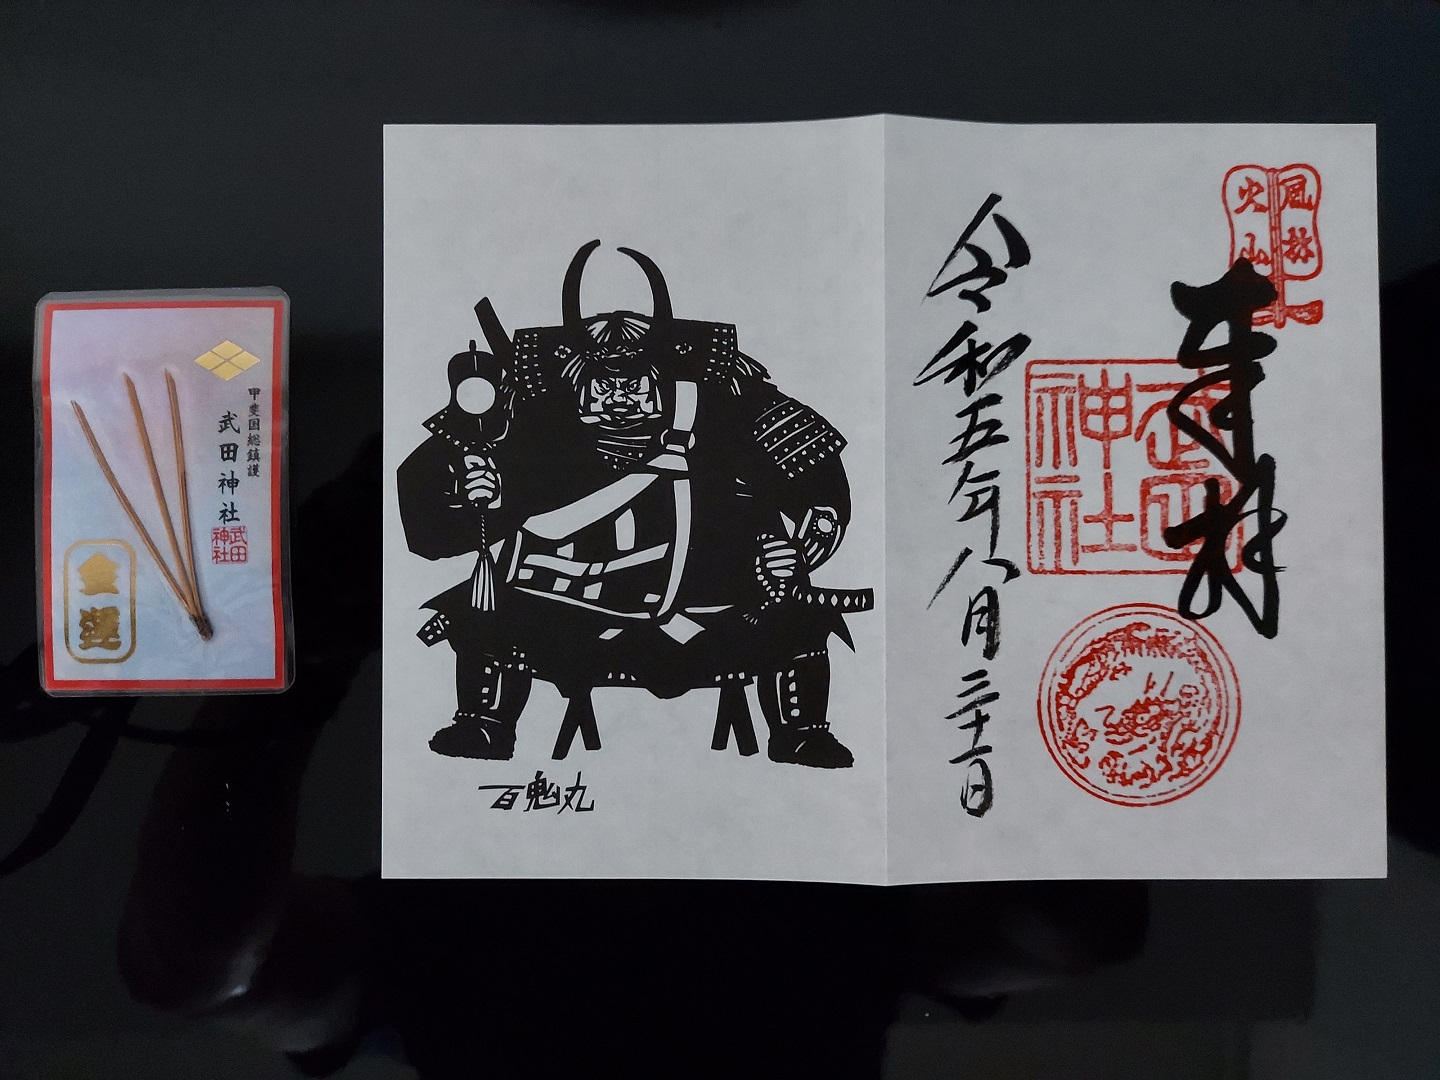 甲斐国総鎮護
武田神社
武田
神社
金運
百鬼丸
風林
火山
奉拝
武田
神社
令和五年八月三十一日